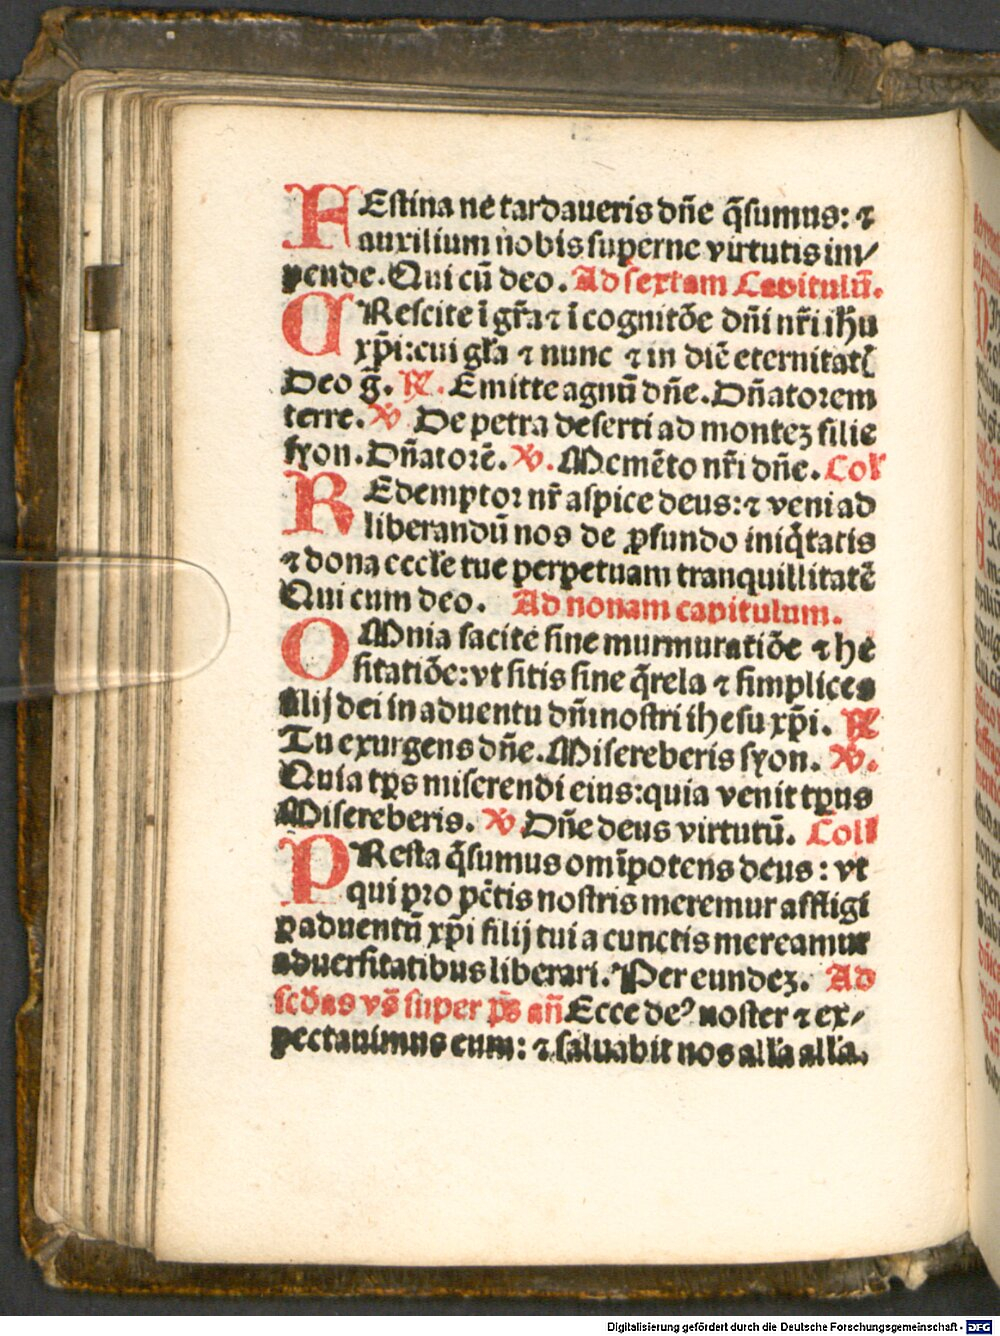 FEstina ne tardaueris dñe q̃sumus: ⁊
auxilium nobis superne virtutis im/
pende. Qui cũ deo. Ad sextam Capitulũ.
CRescite ĩ gr̃a ⁊ ĩ cognitõe dñi nr̃i ih̃u
xp̃i: cui gl̃a ⁊ nunc ⁊ in diẽ eternitatĩ
Deo g̃. ℟. Emitte agnũ dñe. Dñatorem
terre. ℣ De petra deserti ad montez filie
syon. Dñatorẽ. ℣. Memẽto nr̃i dñe. Col̃
REdemptor nr̃ aspice deus: ⁊ veni ad
liberandũ nos de ꝓfundo iniq̃tatis
⁊ dona eccl̃e tue perpetuam tranquillitatẽ
Qui cum deo. Ad nonam capitulum.
OMnia facite sine murmuratiõe ⁊ he
sitatiõe: vt sitis sine q̃rela ⁊ simplices
filij dei in aduentu dñi nostri ihesu xp̃i. ℟
Tu exurgens dñe. Misereberis syon. ℣.
Quia tp̃s miserendi eius: quia venit tp̃us
Misereberis. ℣ Dñe deus virtutũ. Coll
PResta q̃sumus om̃ipotens deus: vt
qui pro pc̃tis nostris meremur affligi
p aduentũ xp̃i filij tui a cunctis mereamur
aduersitatibus liberari. Per eundez. Ad
scd̃as vẽ super p̃s añ Ecce deꝰ noster ⁊ ex/
pectauimus eum: ⁊ saluabit nos all̃a all̃a.
Digitalisierung gefördert durch die Deutsche Forschungsgemeinschaft - DFG